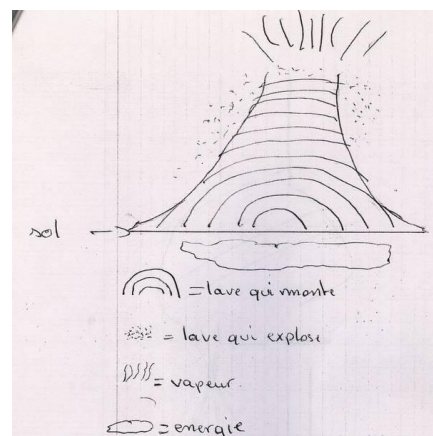 sol
= lave qui monte
= lave qui explose
= vapeur.
= energie